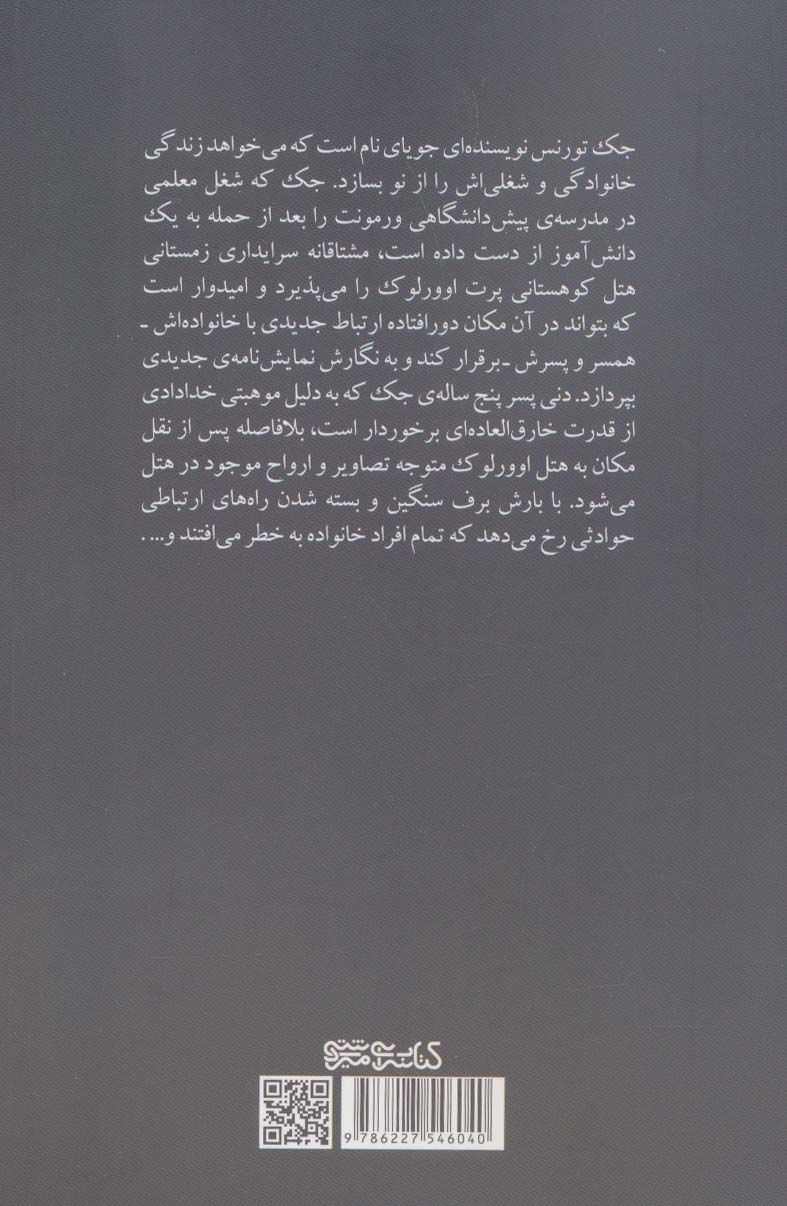 جک تورنس نویسنده‌ای جویای نام است که می‌خواهد زندگی
خانوادگی و شغلی‌اش را از نو بسازد. جک که شغل معلمی
در مدرسه‌ی پیش‌دانشگاهی ورمونت را بعد از حمله به یک
دانش‌آموز از دست داده است، مشتاقانه سرایداری زمستانی
هتل کوهستانی پرت اوورلوک را می‌پذیرد و امیدوار است
که بتواند در آن مکان دورافتاده ارتباط جدیدی با خانواده‌اش ـ
همسر و پسرش ـ‌برقرار کند و به نگارش نمایش‌نامه‌ی جدیدی
بپردازد. دنی پسر پنج ساله‌ی جک که به دلیل موهبتی خدادادی
از قدرت خارق‌العاده‌ای برخوردار است، بلافاصله پس از نقل
مکان به هتل اوورلوک متوجه تصاویر و ارواح موجود در هتل
می‌شود. با بارش برف سنگین و بسته شدن راه‌های ارتباطی
حوادثی رخ می‌دهد که تمام افراد خانواده به خطر می‌افتند و... .
9 786227 546040